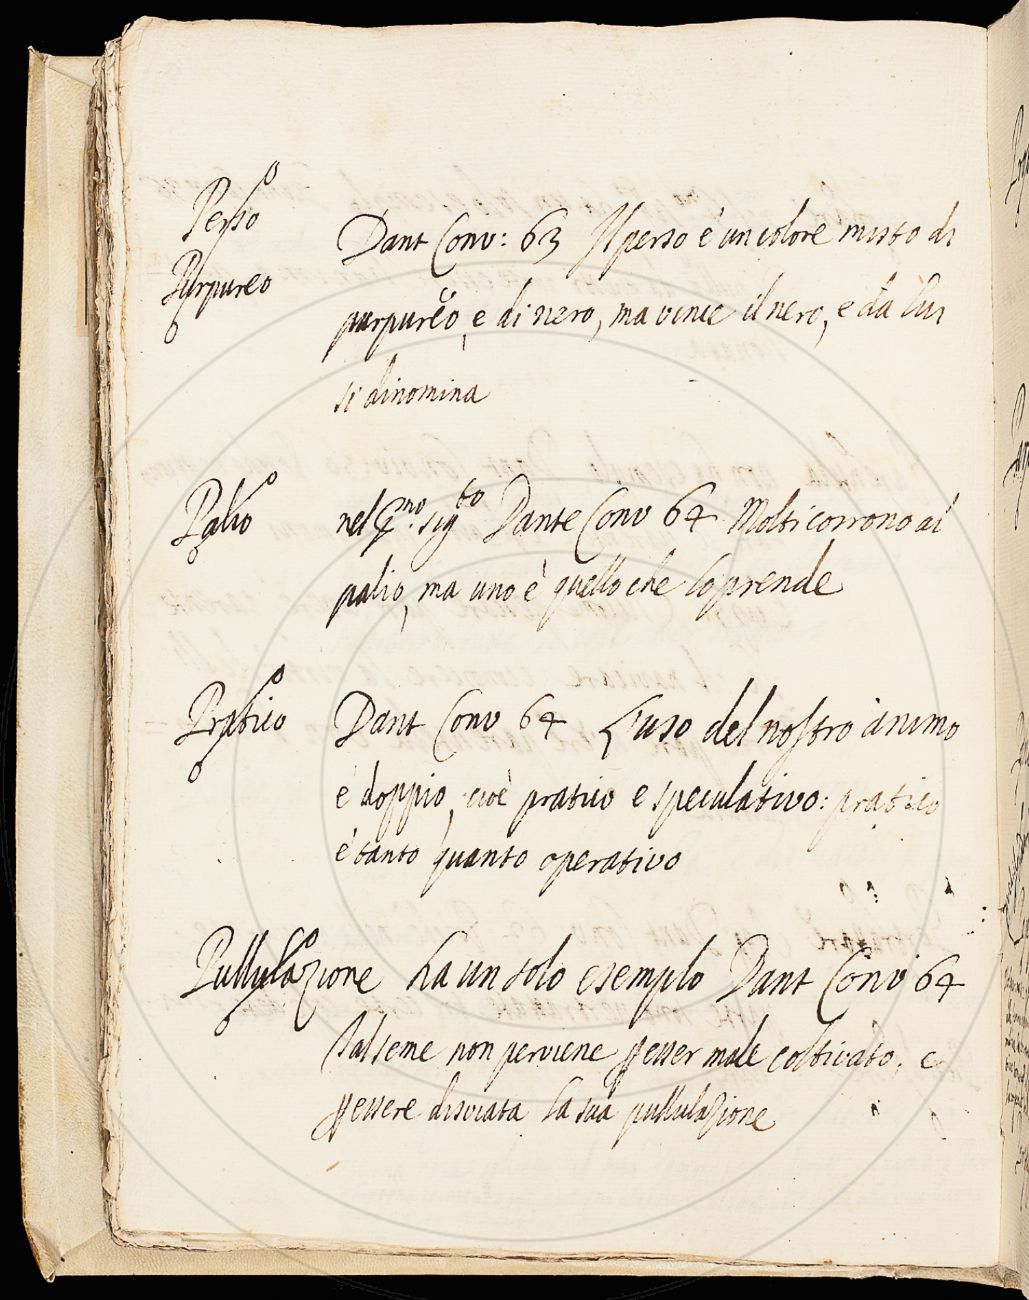 Perso
Purpureo
Dant Conv: 63 Il perso è un colore misto di
purpureo, e di nero, ma vince il nero, e da lui
si dinomina
Palio
nel P.mo sig.to Dante Conv 64 Molti corrono al
palio, ma uno è quello che lo prende
Pratico
Dant Conv 64 L'uso del nostro animo
è doppio, cioè pratico e speculativo: pratico
è tanto quanto operativo
Pullulazione ha un solo esempio Dant Conv 64
Mal seme non perviene p esser male coltivato, e
p essere disviata la sua pullulazione